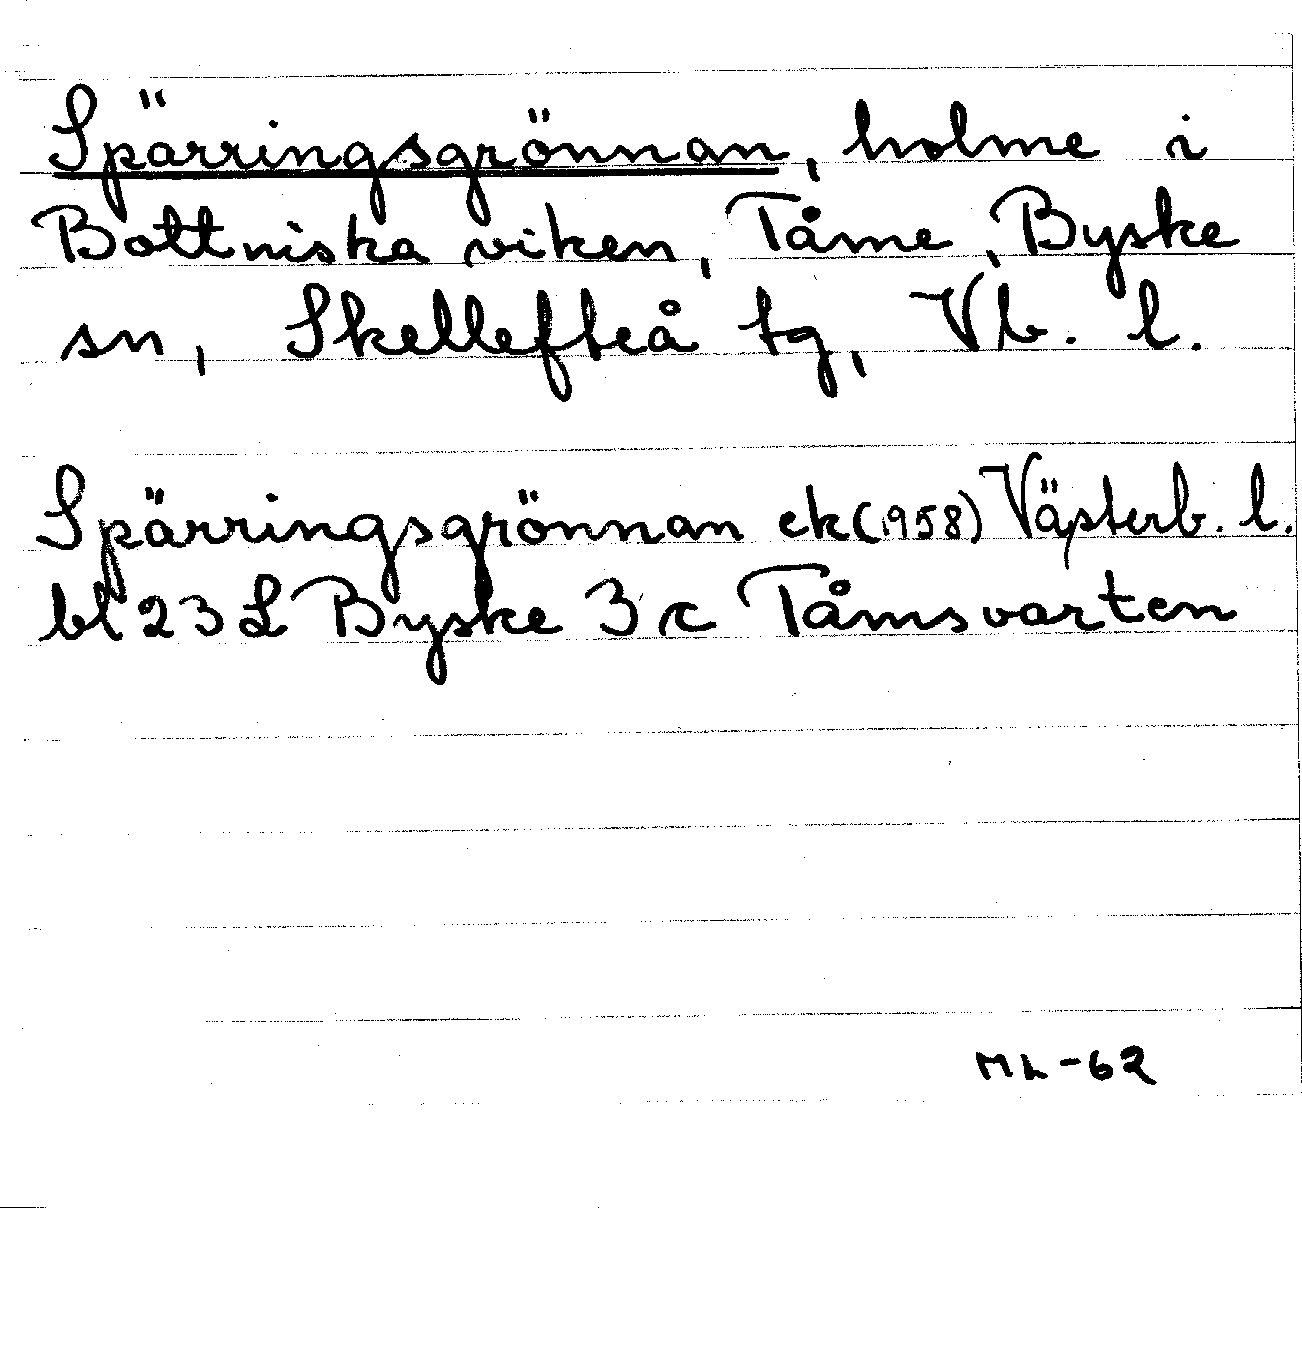 Spärringsgrönnan, holme i
Bottniska viken, Tåme, Byske
sn, Skellefteå tg, Vb. l.
Spärringsgrönnan ek (1958) Västerb. l.
bl 23 L Byske 3 c Tåmsvarten
ML-62